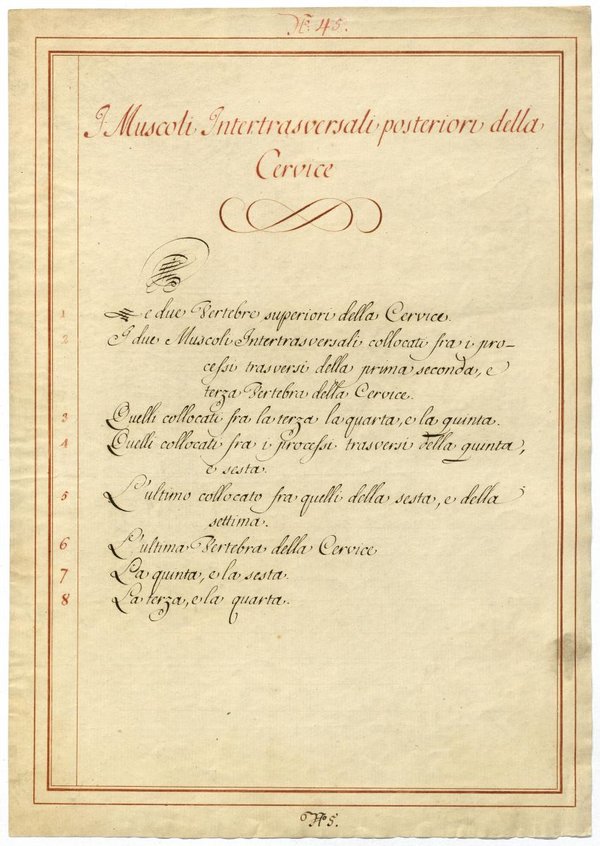 N.º 45.
I Muscoli Intertrasversali posteriori della
Cervice
1 Le due Vertebre superiori della Cervice.
2 I due Muscoli Intertrasversali collocati fra i pro-
cessi trasversi della prima seconda, e
terza Vertebra della Cervice.
3 Quelli collocati fra la terza la quarta, e la quinta.
4 Quelli collocati fra i processi trasversi della quinta,
e sesta.
5 L'ultimo collocato fra quelli della sesta, e della
settima.
6 L'ultima Vertebra della Cervice
7 La quinta, e la sesta.
8 La terza, e la quarta.
N.º 5.